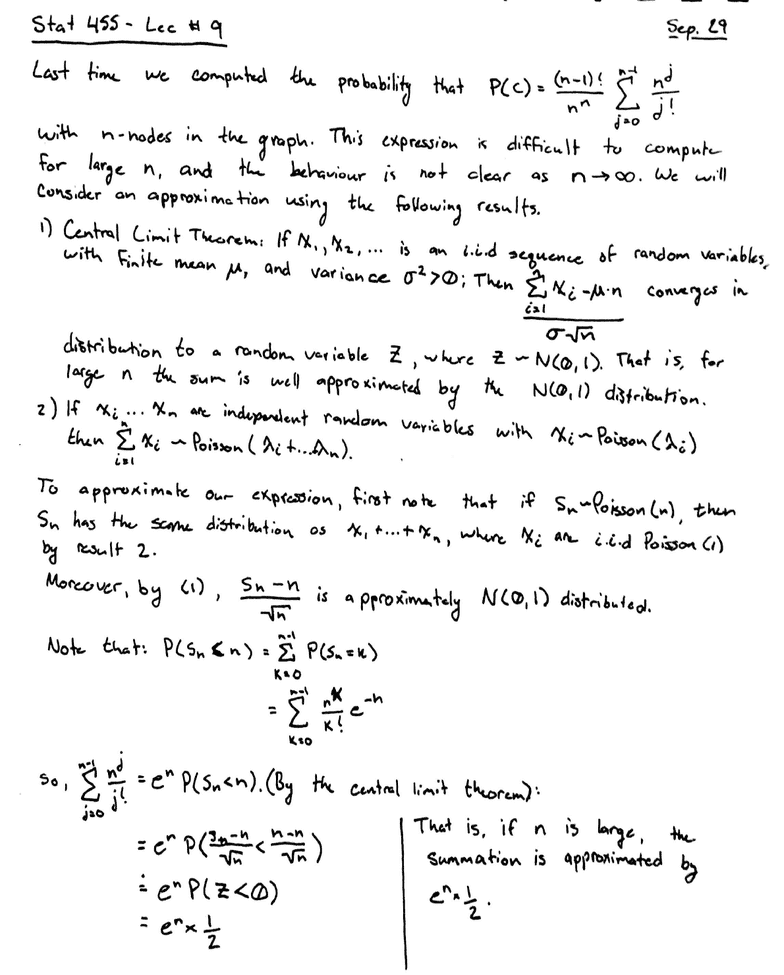 Stat 455 - Lec # 9 Sep. 29
Last time we computed the probability that P(C) = (n-1)!/n^n Σ_{j=0}^{n-1} n^j/j!
with n-nodes in the graph. This expression is difficult to compute
for large n, and the behaviour is not clear as n→∞. We will
consider an approximation using the following results.
1) Central Limit Theorem: If X₁, X₂, ... is an i.i.d sequence of random variables,
with finite mean μ, and variance σ²>0; Then (Σ_{i=1}^{n} X_i - μ·n)/(σ√n) converges in
distribution to a random variable Z, where Z ~ N(0,1). That is, for
large n the sum is well approximated by the N(0,1) distribution.
2) If X_i ... X_n are independent random variables with X_i ~ Poisson(λ_i)
then Σ_{i=1}^{n} X_i ~ Poisson(λ_i+...λ_n).
To approximate our expression, first note that if S_n ~ Poisson(n), then
S_n has the same distribution as X₁+...+X_n, where X_i are i.i.d Poisson(1)
by result 2.
Moreover, by (1), (S_n - n)/√n is approximately N(0,1) distributed.
Note that: P(S_n < n) = Σ_{K=0}^{n-1} P(S_n = K)
= Σ_{K=0}^{n-1} n^K/K! e^{-n}
So, Σ_{j=0}^{n-1} n^j/j! = e^n P(S_n < n). (By the central limit theorem):
= e^n P((S_n - n)/√n < (n-n)/√n)
≐ e^n P(Z < 0)
= e^n × 1/2
That is, if n is large, the
summation is approximated by
e^n × 1/2.